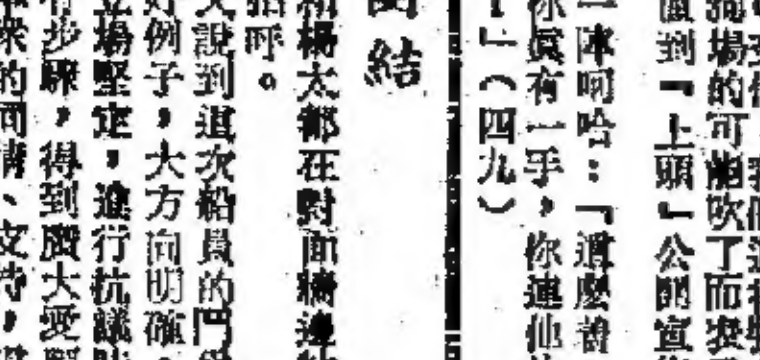 場的可能吹了而
到「上頭」公開宣
一陣呵哈：「這麼
你真有一手，你連他
！」（四九）
結
楊太都在對面
招呼。
說到這次船員的鬥
好例子，大方向明確。
立場堅定，進行抗議
有步驟，得到廣大愛
來的同情、支持，